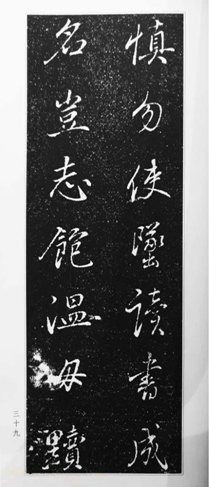 慎勿使墜讀書成
名豈志飽溫毋黷
三十九